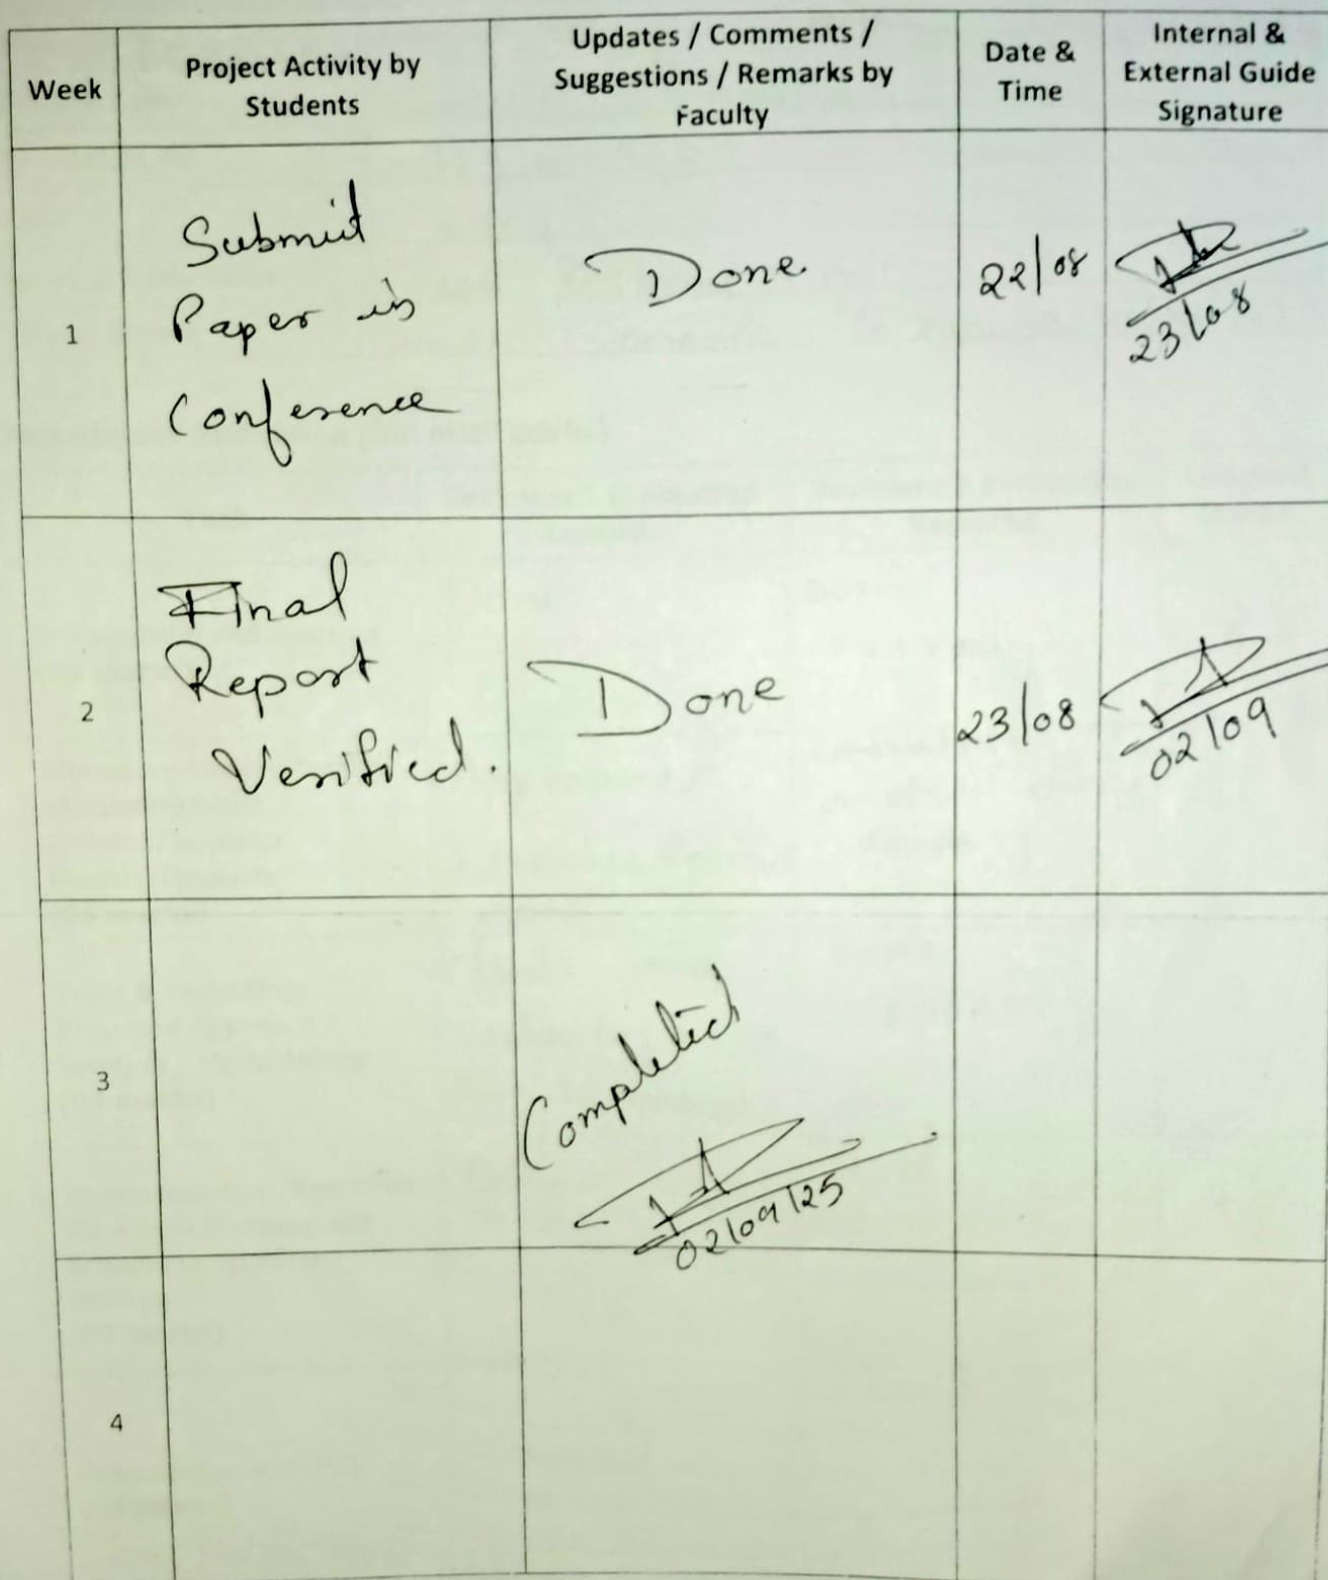 Week
Project Activity by
Students
Updates / Comments /
Suggestions / Remarks by
Faculty
Date &
Time
Internal &
External Guide
Signature
1
Submit
Paper in
Conference
Done
22/08
23/08
2
Final
Report
Verified.
Done
23/08
02/09
3
Completed
02/09/25
4